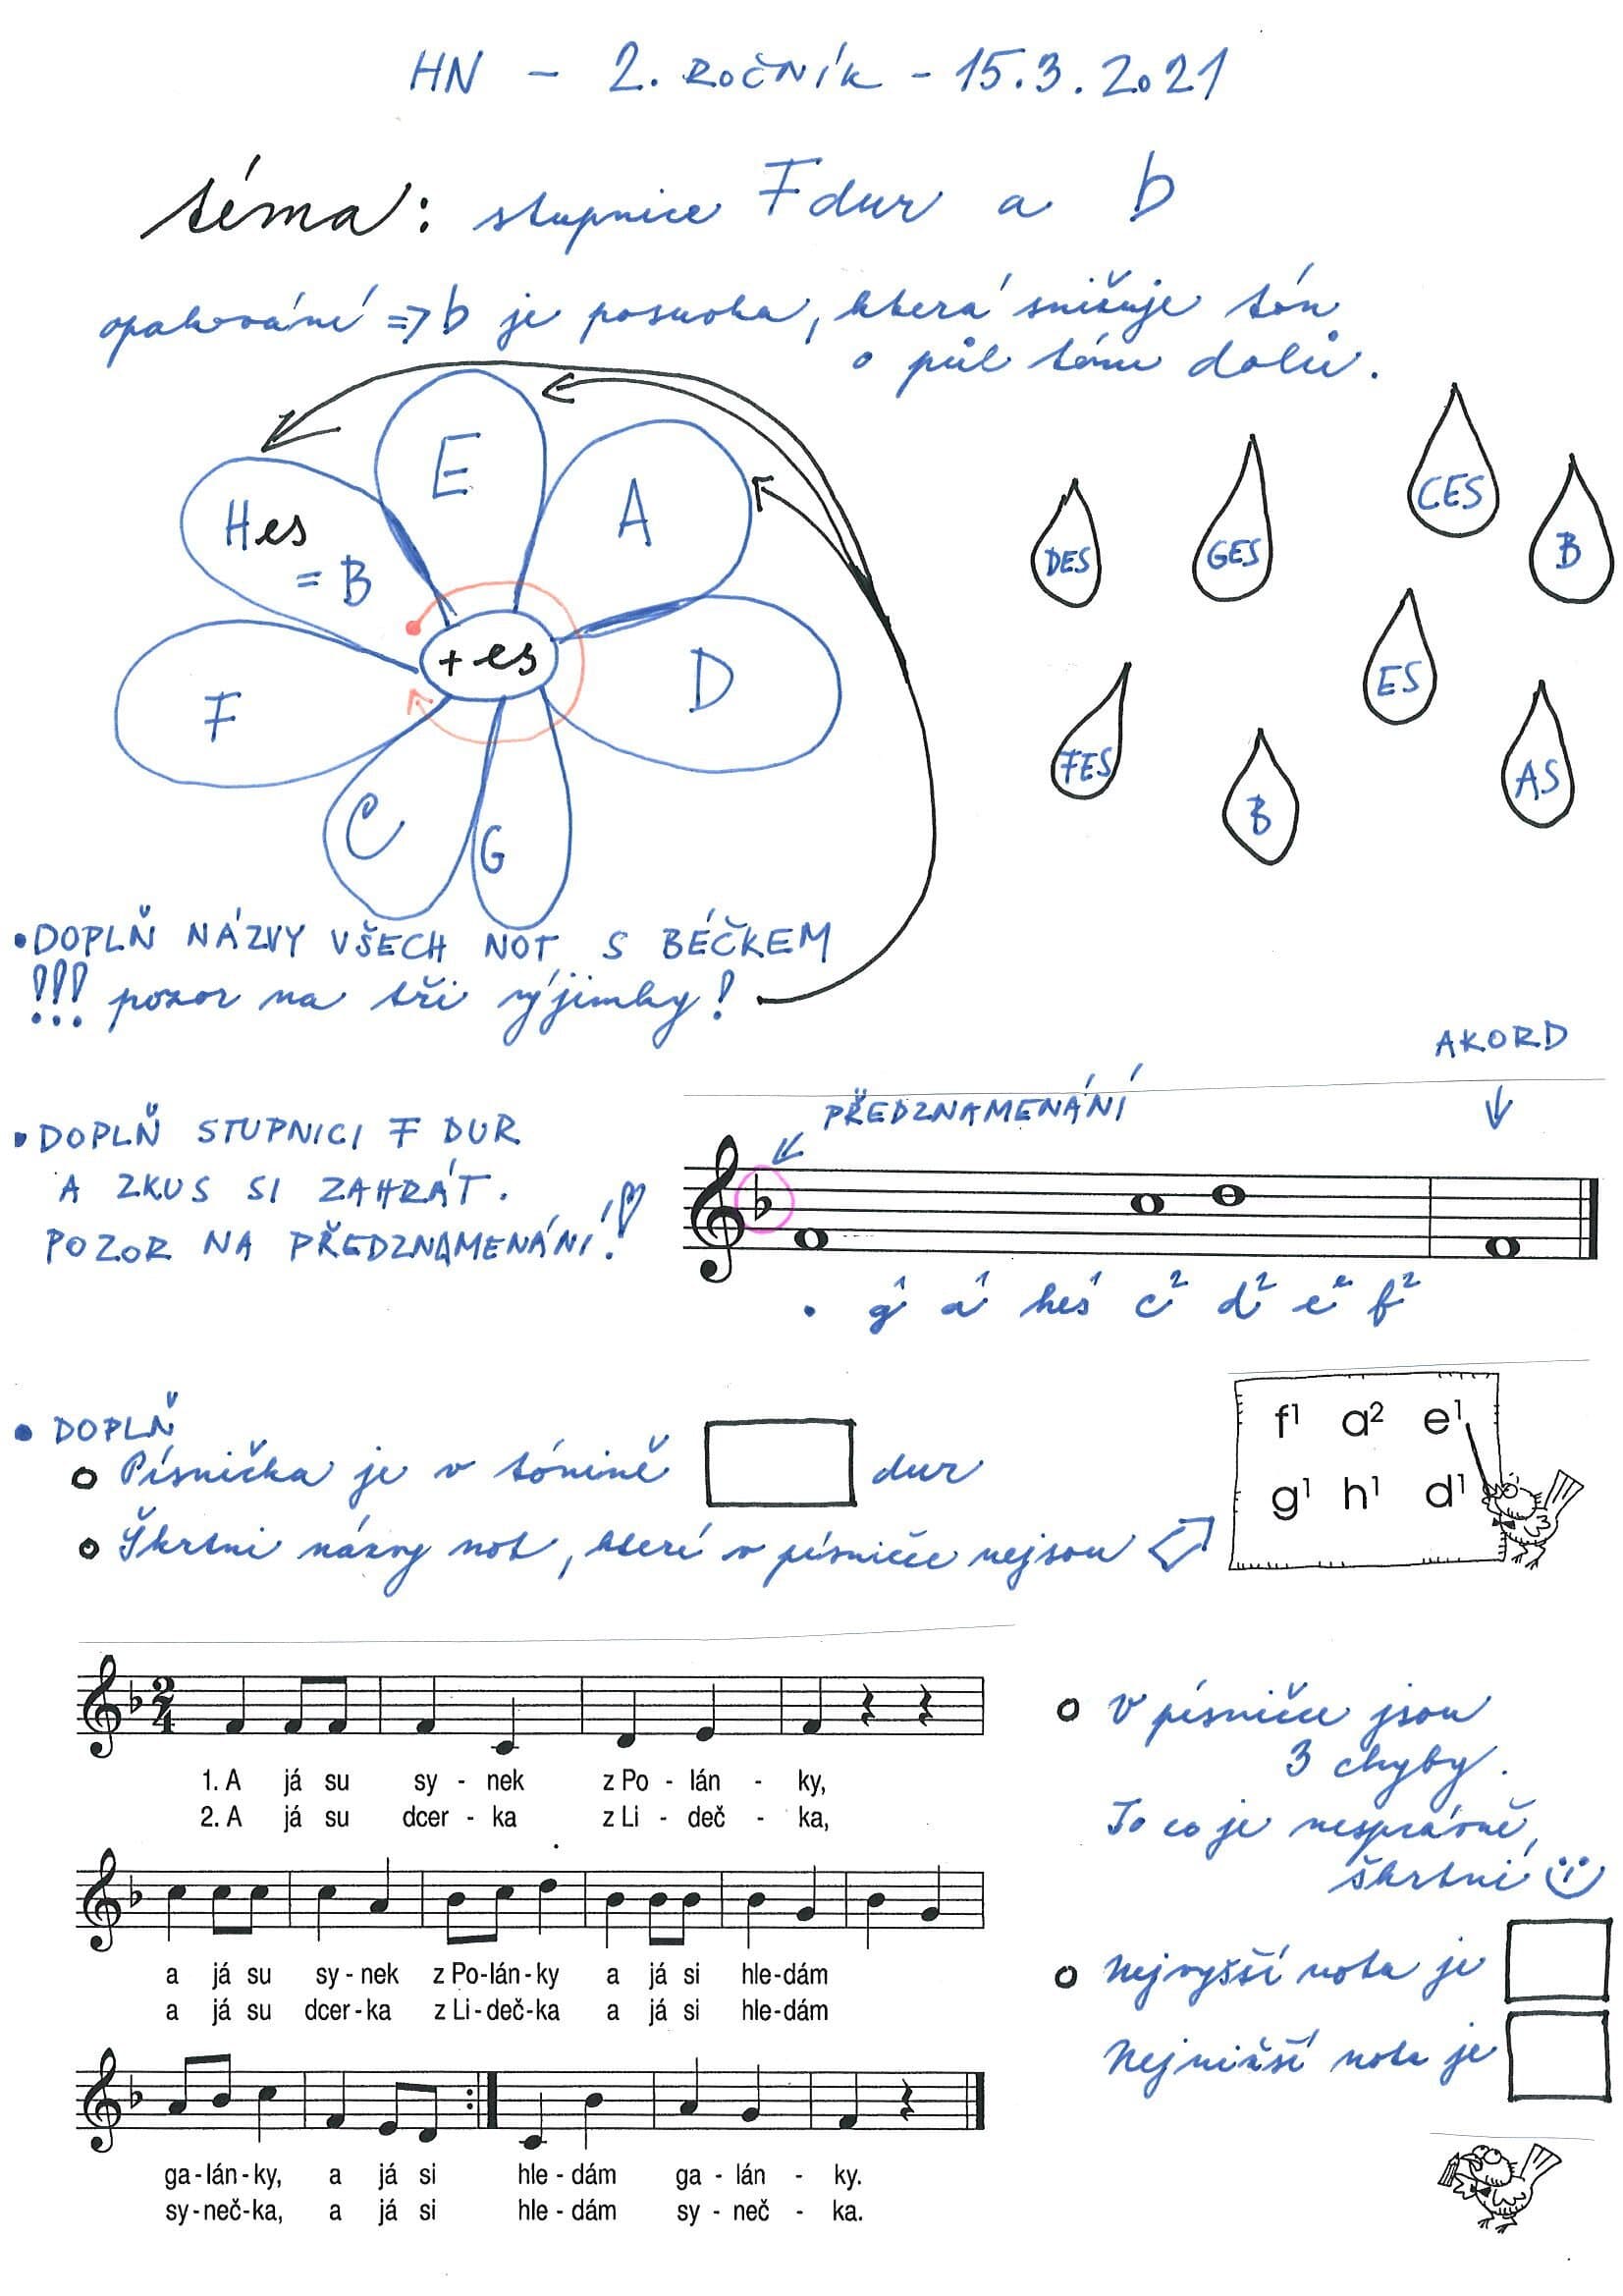 HN - 2. ROČNÍK - 15.3.2021
téma: stupnice F dur a b
opakování => b je posuvka, která snižuje tón
o půl tónu dolů.
E
A
Hes
= B
+ es
D
F
C
G
CES
B
DES
GES
ES
FES
B
AS
• DOPLŇ NÁZVY VŠECH NOT S BÉČKEM
!!! pozor na tři výjimky!
AKORD
PŘEDZNAMENÁNÍ
• DOPLŇ STUPNICI F DUR
A ZKUS SI ZAHRÁT.
POZOR NA PŘEDZNAMENÁNÍ!
. g¹ a¹ hes¹ c² d² e² f²
• DOPLŇ
o Písnička je v tónině dur
o Škrtni názvy not, které v písničce nejsou
f¹ a² e¹
g¹ h¹ d¹
2
4
1. A já su sy - nek z Po - lán - ky,
2. A já su dcer - ka z Li - deč - ka,
a já su sy - nek z Po-lán-ky a já si hle-dám
a já su dcer-ka z Li-deč-ka a já si hle-dám
ga-lán-ky, a já si hle - dám ga - lán - ky.
sy-neč-ka, a já si hle - dám sy - neč - ka.
o V písničce jsou
3 chyby.
To co je nesprávně,
škrtni
o Nejvyšší nota je
Nejnižší nota je